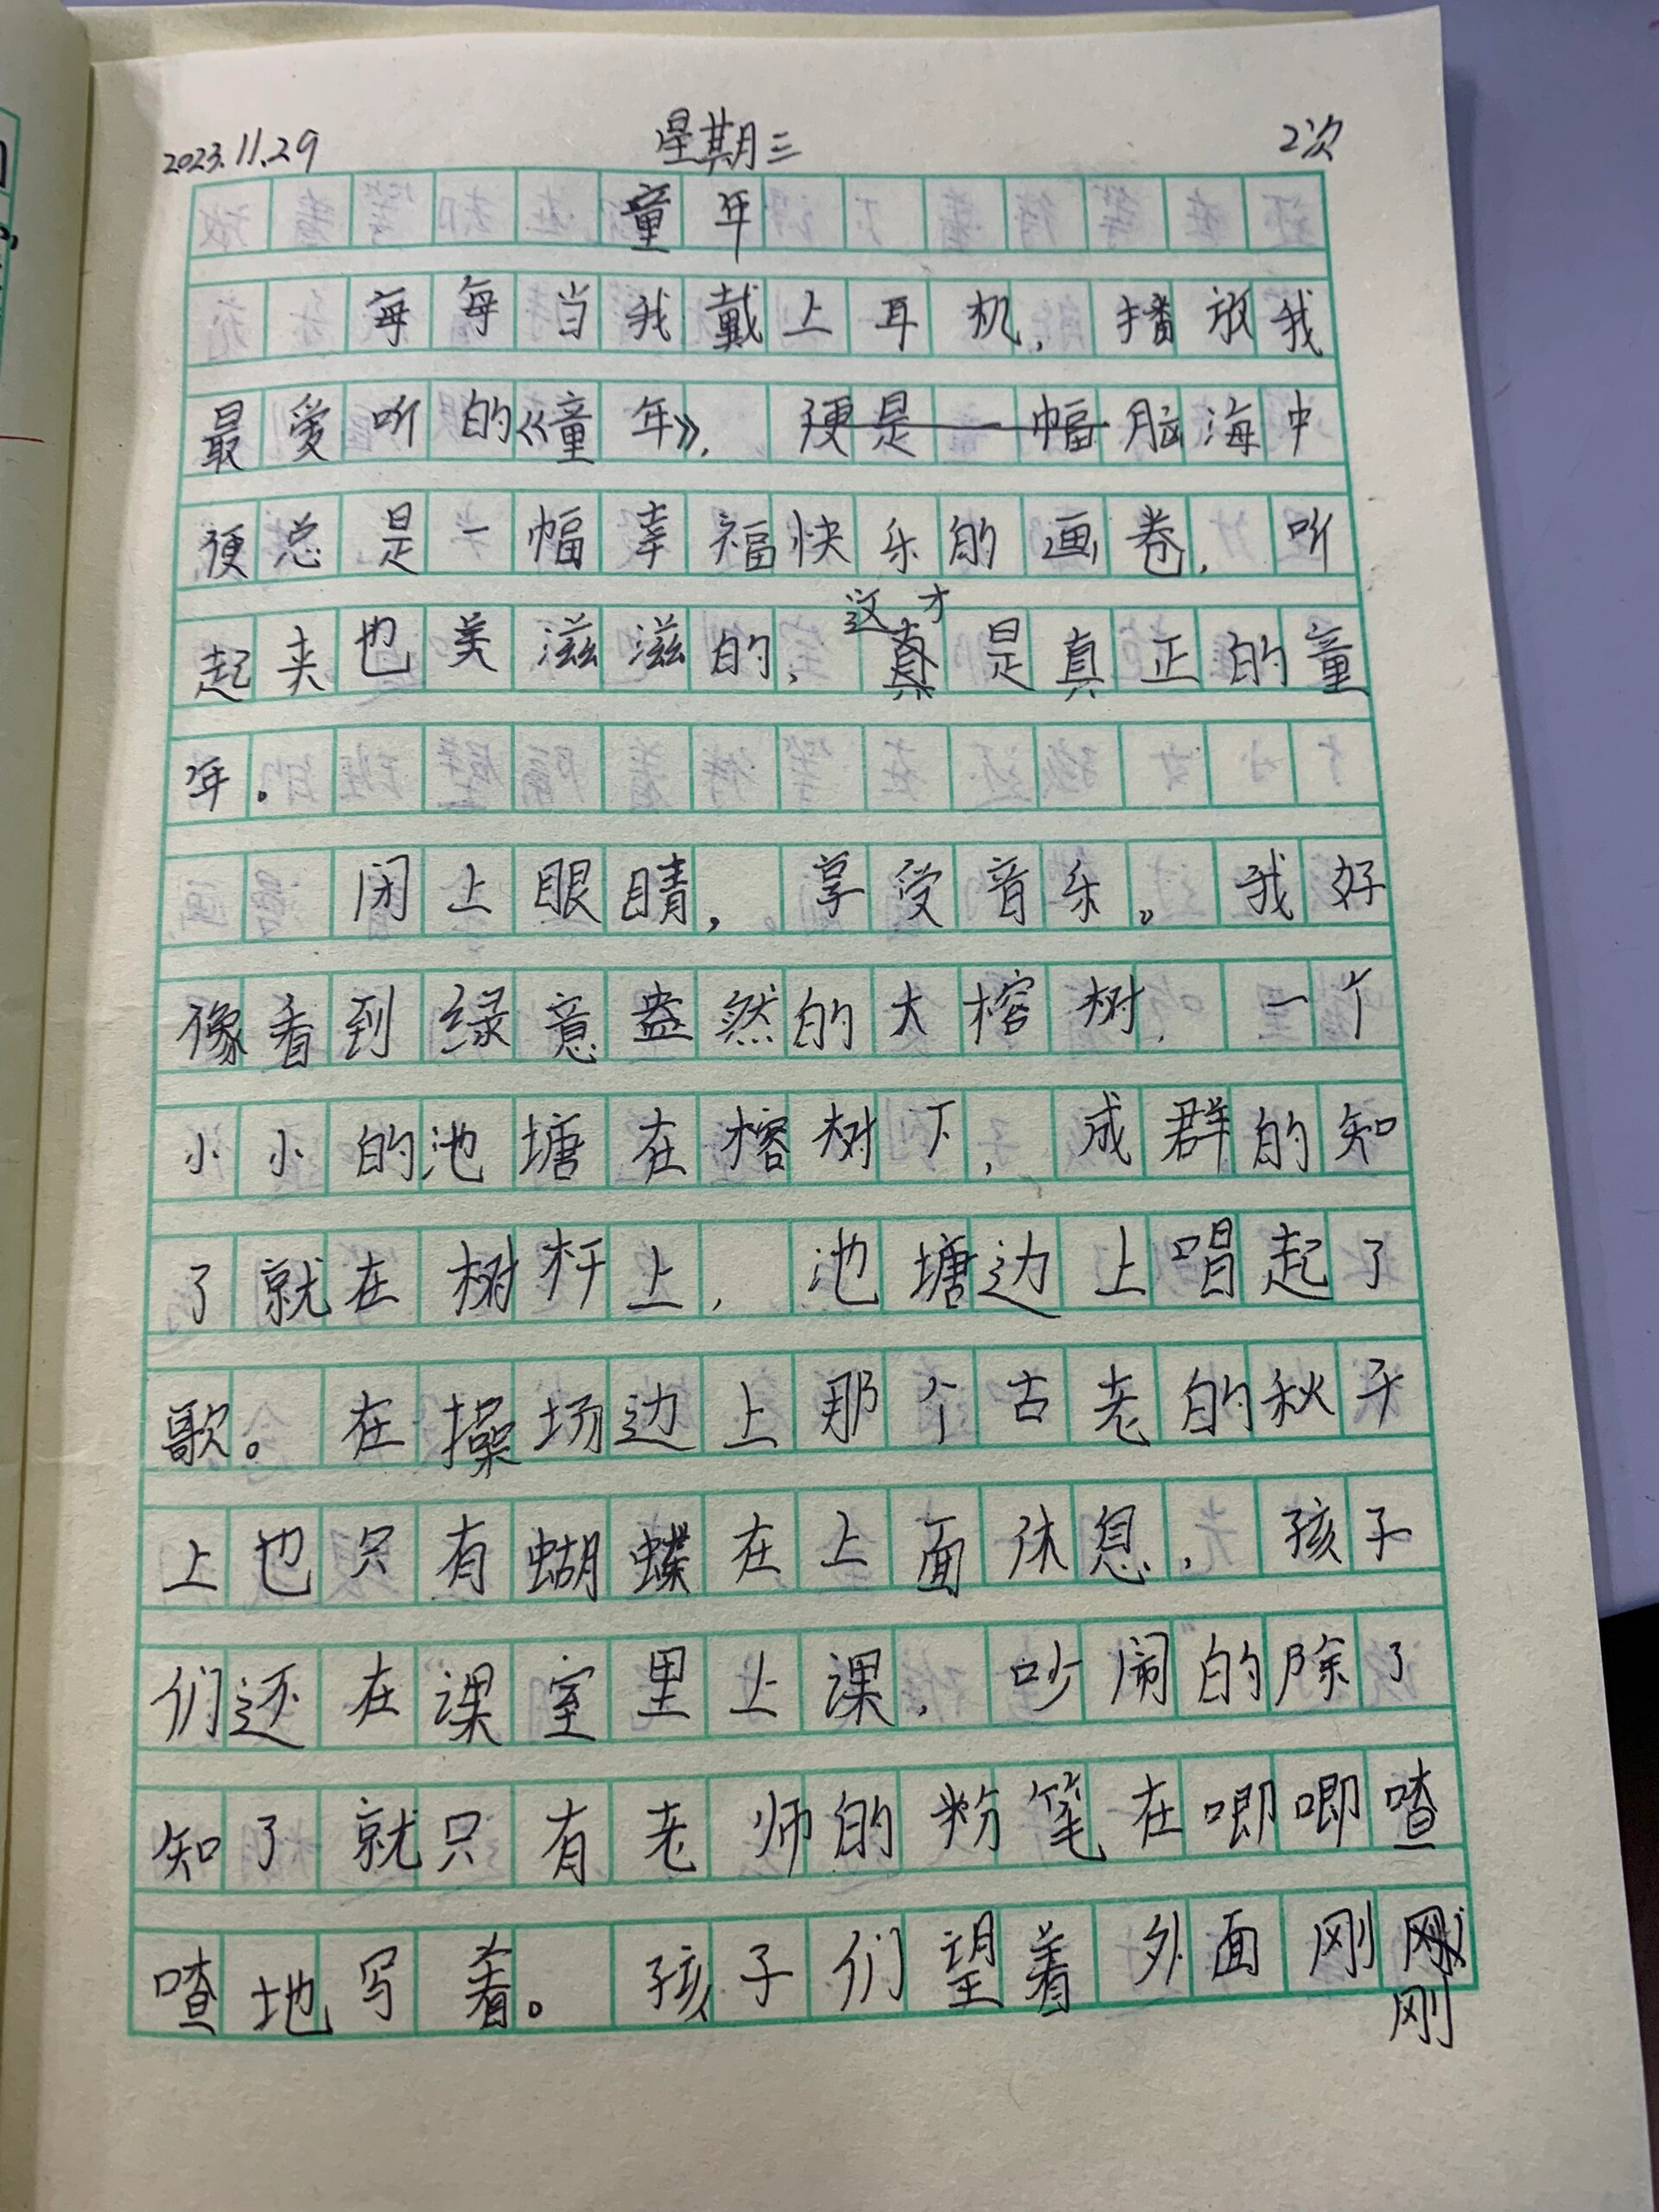 2023.11.29 星期三 2次
童年
每每当我戴上耳机，播放我
最爱听的《童年》，便是一幅脑海中
便总是一幅幸福快乐的画卷，听
这才
起来也美滋滋的，真是真正的童
年。
闭上眼睛，享受音乐。我好
像看到绿意盎然的大榕树，一个
小小的池塘在榕树下，成群的知
了就在树杆上，池塘边上唱起了
歌。在操场边上那个古老的秋千
上也只有蝴蝶在上面休息，孩子
们还在课室里上课，吵闹的除了
知了就只有老师的粉笔在唧唧喳
喳地写着。孩子们望着外面刚刚
刚